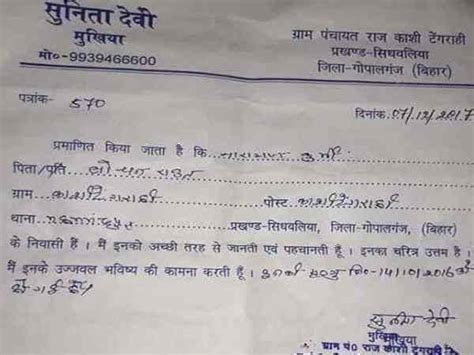 सुनिता देवी
मुखिया
मो०-9939466600
ग्राम पंचायत राज काशी टेंगराही
प्रखण्ड-सिधवलिया
जिला-गोपालगंज (बिहार)
पत्रांक- 570
दिनांक. 07/12/2017
प्रमाणित किया जाता है कि
पिता/पति
ग्राम काशी टेंगराही पोस्ट काशी टेंगराही
थाना प्रखण्ड-सिधवलिया, जिला-गोपालगंज, (बिहार)
के निवासी हैं। मैं इनको अच्छी तरह से जानती एवं पहचानती हूँ। इनका चरित्र उत्तम है।
मैं इनके उज्जवल भविष्य की कामना करती हूँ। इनकी मृत्यु दि०-14/10/2016 को
हो गई है
सुनीता देवी
मुखिया
ग्राम पं० राज काशी टेंगराही